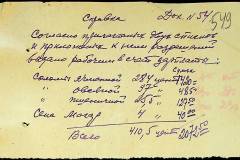 Справка Док. № 54/549
Согласно прилагаемых двух списков
и приложених к ним разрешений
выдано рабочим в счет зарплаты:
Сумма
Соломы ячменной 284 цент
" овсяной 97 " 485=
" пшеничной 25,5 " 127.50
Сена Могар 4 " 40.00
Всего 410,5 цент 2072.50